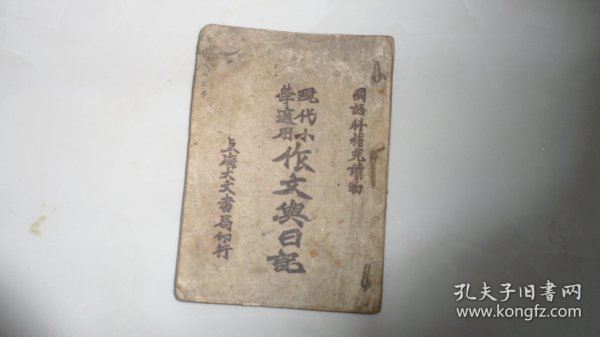 國語科補充讀物
現代小
學適用
作文與日記
上海大文書局印行
孔夫子旧书网
www.kongfz.com